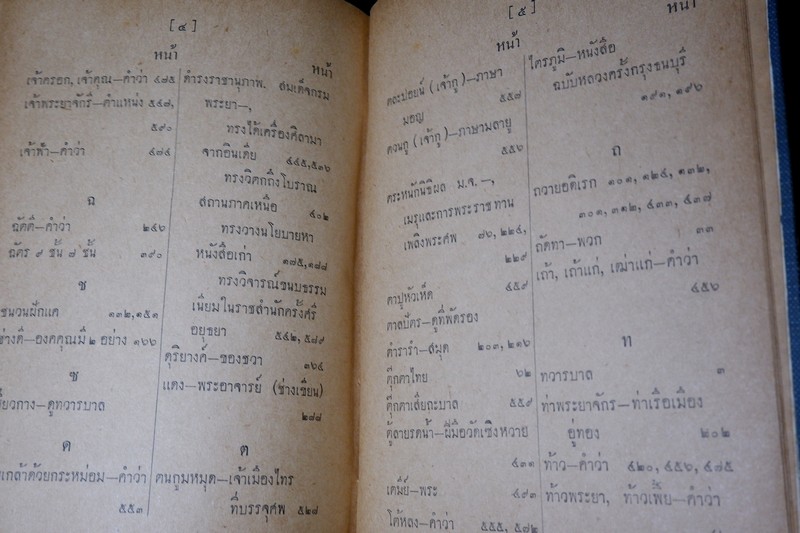 [ ๔ ]
หน้า
เจ้าครอก, เจ้าคุณ—คำว่า ๔๘๕
เจ้าพระยาจักรี—ตำแหน่ง ๕๔๗,
๕๙๐
เจ้าฟ้า—คำว่า ๔๘๔
ฉ
ฉัตติ—คำว่า ๒๔๖
ฉัตร ๙ ชั้น ๗ ชั้น ๓๙๐
ช
ชนวนฝักแค ๑๓๒,๑๕๑
ช่างดี—องคคุณมี ๒ อย่าง ๑๖๖
ซ
เซี่ยวกาง—ดูทวารบาล
ด
เกล้าด้วยกระหม่อม—คำว่า
๕๕๓
หน้า
ดำรงราชานุภาพ. สมเด็จกรม
พระยา—,
ทรงได้เครื่องศิลามา
จากอินเดีย ๔๔๕,๕๓๖
ทรงวิตกถึงโบราณ
สถานภาคเหนือ ๔๐๒
ทรงวางนโยบายหา
หนังสือเก่า ๑๘๕,๑๘๘
ทรงวิจารณ์ขนบธรรม
เนียมในราชสำนักครั้งศรี
อยุธยา ๕๔๒,๕๘๙
ดุริยางค์—ของชวา ๑๖๔
แดง—พระอาจารย์ (ช่างเขียน)
๒๘๘
ต
ตนกูมหมุด—เจ้าเมืองไทร
ที่บรรจุศพ ๕๒๘
[ ๕ ]
หน้า
ตละปอยน์ (เจ้ากู)—ภาษา
มอญ ๕๕๘
ตวนกู (เจ้ากู)—ภาษามลายู
๕๕๖
ตระหนักนิธิผล ม.จ. —,
เมรุและการพระราชทาน
เพลิงพระศพ ๘๖, ๒๒๔,
๒๒๙
ตาปูหัวเห็ด ๔๕๙
ตาลปัตร—ดูที่พัดรอง
ตำรารำ—สมุด ๒๐๓, ๒๑๖
ตุ๊กตาไทย ๖๒
ตุ๊กตาเสียกะบาล ๕๕๙
ตู้ลายรดน้ำ—ฝีมือวัดเซิงหวาย
๔๓๑
เตมีย์—พระ ๔๙๓
โต้หลง—คำว่า ๕๕๕, ๕๗๒
หน้า
ไตรภูมิ—หนังสือ
ฉบับหลวงครั้งกรุงธนบุรี
๑๙๑, ๑๙๖
ถ
ถวายอดิเรก ๑๐๑, ๑๒๔, ๑๓๒,
๓๐๑, ๓๑๒, ๔๓๓, ๔๓๗
ถัดทา—พวก ๓๓
เถ้า, เถ้าแก่, เฒ่าแก่—คำว่า
๔๕๖
ท
ทวารบาล ๓
ท่าพระยาจักร—ท่าเรือเมือง
อู่ทอง ๒๐๒
ท้าว—คำว่า ๔๒๐, ๔๕๖, ๔๘๕
ท้าวพระยา, ท้าวเพี้ย—คำว่า